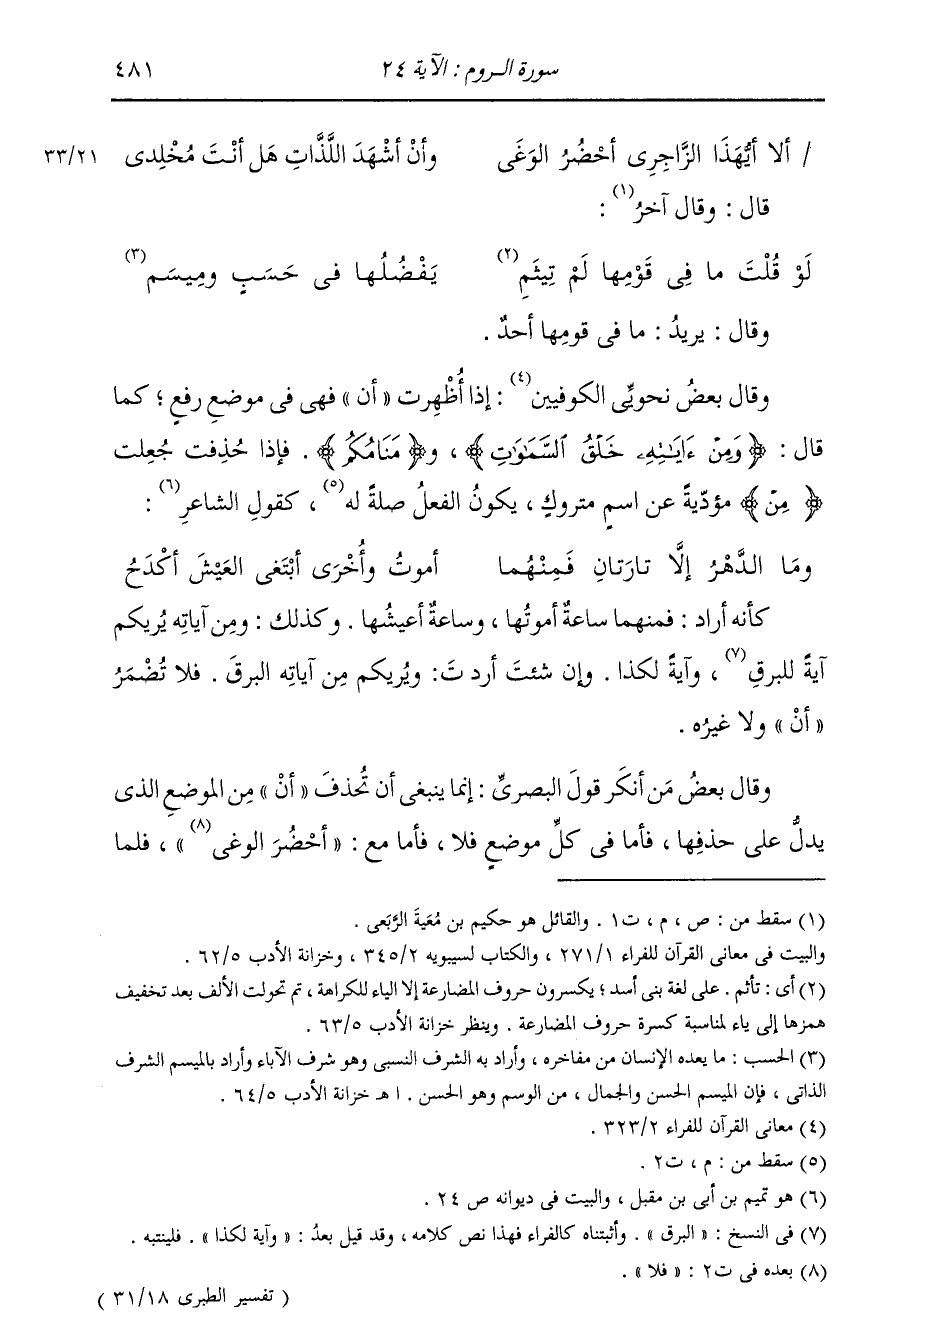 سورة الروم : الآية ٢٤ ٤٨١
/ ألا أيُّهَذَا الزَّاجِرِى أحْضُرُ الوَغَى وأنْ أشْهَدَ اللَّذَّاتِ هَل أنْتَ مُخْلِدى ٣٣/٢١
قال : وقال آخرُ(١) :
لَوْ قُلْتَ ما فِى قَوْمِها لَمْ تِيثَمِ(٢) يَفْضُلُها فى حَسَبٍ ومِيسَمِ(٣)
وقال : يريدُ : ما فى قومِها أحدٌ .
وقال بعضُ نحويِّى الكوفيين(٤) : إذا أُظْهِرت « أن » فهى فى موضعِ رفعٍ ؛ كما
قال : ﴿ وَمِنْ ءَايَـٰتِهِۦ خَلْقُ ٱلسَّمَـٰوَٰتِ ﴾ ، و﴿ مَنَامُكُم ﴾ . فإذا حُذِفت جُعِلت
﴿ مِنْ ﴾ مؤدّيةً عن اسمٍ متروكٍ ، يكونُ الفعلُ صلةً له(٥) ، كقولِ الشاعرِ(٦) :
ومَا الدَّهْرُ إلَّا تارَتانِ فَمِنْهُما أموتُ وأُخْرَى أبْتَغى العَيْشَ أكْدَحُ
كأنه أراد : فمنهما ساعةٌ أموتُها ، وساعةٌ أعيشُها . وكذلك : ومِن آياتِه يُريكم
آيةً للبرقِ(٧) ، وآيةً لكذا . وإن شئتَ أردتَ : ويُريكم مِن آياتِه البرقَ . فلا تُضْمَرُ
« أنْ » ولا غيرُه .
وقال بعضُ مَن أنكَر قولَ البصرىِّ : إنما ينبغى أن تُحذفَ « أنْ » مِن الموضعِ الذى
يدلُّ على حذفِها ، فأما فى كلِّ موضعٍ فلا ، فأما مع : « أحْضُرَ الوغى(٨) » ، فلما
(١) سقط من : ص ، م ، ت١ . والقائل هو حكيم بن مُعَيةَ الرَّبَعى .
والبيت فى معانى القرآن للفراء ٢٧١/١ ، والكتاب لسيبويه ٣٤٥/٢ ، وخزانة الأدب ٦٢/٥ .
(٢) أى : تأثم . على لغة بنى أسد ؛ يكسرون حروف المضارعة إلا الياء للكراهة ، ثم تحولت الألف بعد تخفيف
همزها إلى ياء لمناسبة كسرة حروف المضارعة . وينظر خزانة الأدب ٦٣/٥ .
(٣) الحسب : ما يعده الإنسان من مفاخره ، وأراد به الشرف النسبى وهو شرف الآباء وأراد بالميسم الشرف
الذاتى ، فإن الميسم الحسن والجمال ، من الوسم وهو الحسن . ا هـ خزانة الأدب ٦٤/٥ .
(٤) معانى القرآن للفراء ٣٢٣/٢ .
(٥) سقط من : م ، ت٢ .
(٦) هو تميم بن أبى بن مقبل ، والبيت فى ديوانه ص ٢٤ .
(٧) فى النسخ : « البرق » . وأثبتناه كالفراء فهذا نص كلامه ، وقد قيل بعدُ : « وآية لكذا » . فلينتبه .
(٨) بعده فى ت٢ : « فلا » .
( تفسير الطبرى ٣١/١٨ )